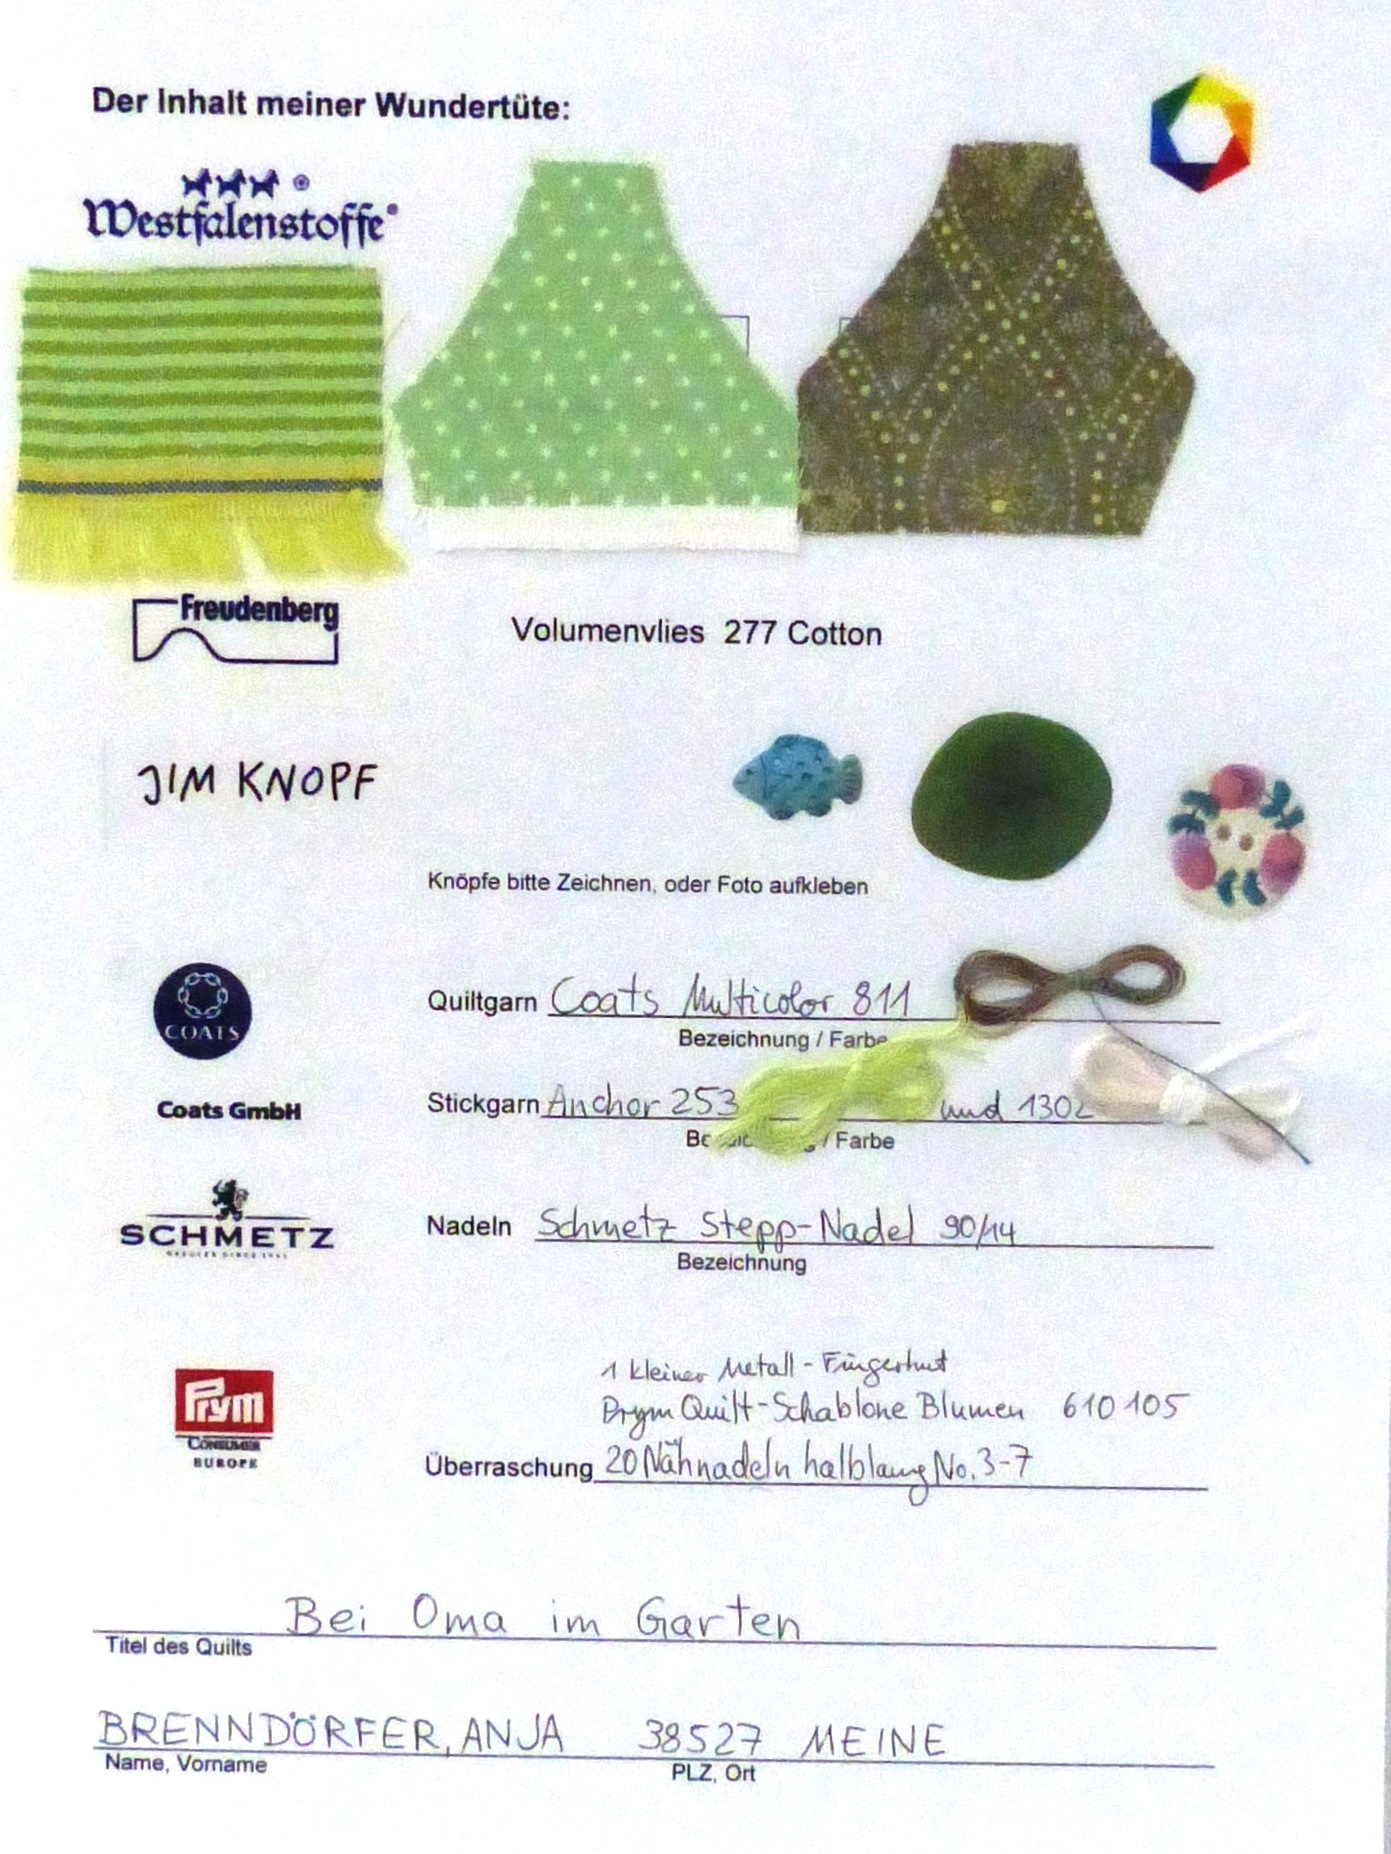 Der Inhalt meiner Wundertüte:
Westfalenstoffe
Freudenberg
Volumenvlies 277 Cotton
JIM KNOPF
Knöpfe bitte Zeichnen, oder Foto aufkleben
Quiltgarn Coats Multicolor 811
Bezeichnung / Farbe
COATS
Coats GmbH
Stickgarn Anchor 253 und 1302
/ Farbe
SCHMETZ
Nadeln Schmetz Stepp-Nadel 90/14
Bezeichnung
1 kleiner Metall-Fingerhut
Prym Quilt-Schablone Blumen 610 105
Prym
CONSUMER
EUROPE
Überraschung 20 Nähnadeln halblang No. 3-7
Bei Oma im Garten
Titel des Quilts
BRENNDÖRFER, ANJA 38527 MEINE
Name, Vorname PLZ, Ort